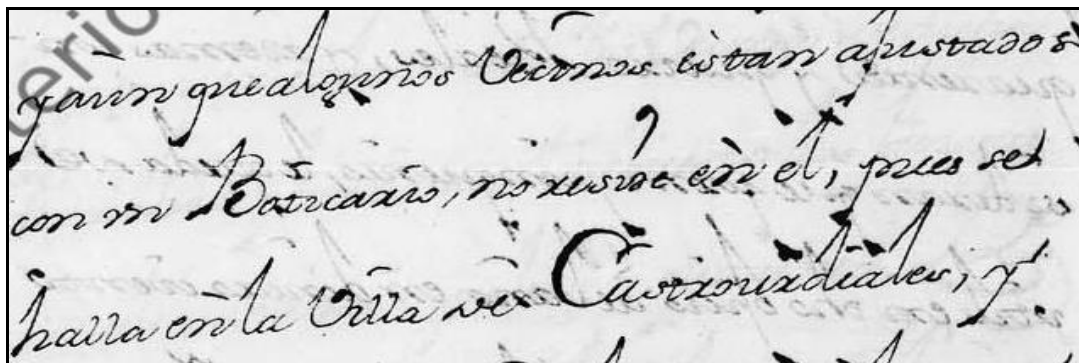 y aun que algunos Vecinos estan ajustados
con un Boticario, no reside en el, pues se
halla en la Villa de Castrourdiales, y